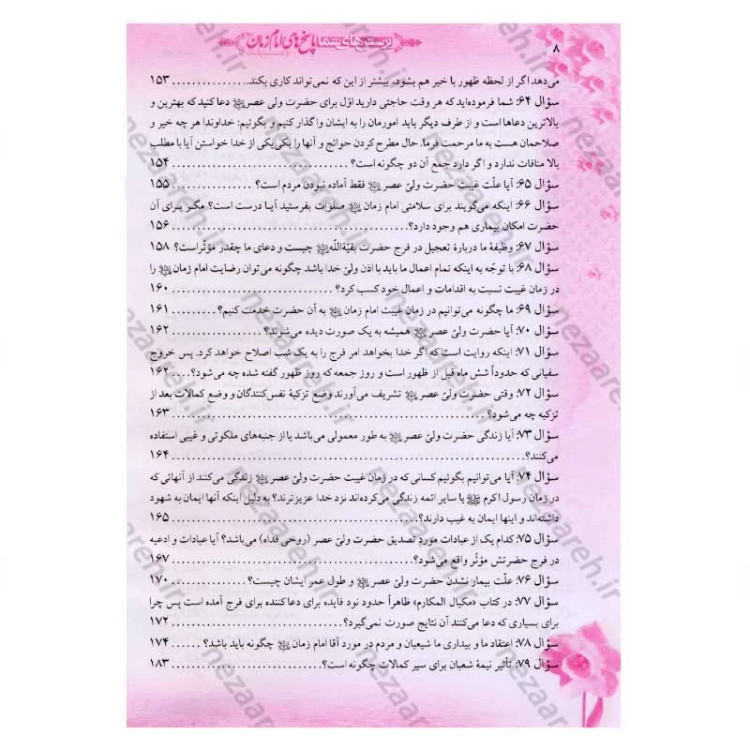 پرسش‌های شما پاسخ‌های امام زمان
۸
می‌دهد اگر از لحظه ظهور با خبر هم بشود، بیشتر از این که نمی‌تواند کاری بکند................ ۱۵۳
سؤال ۶۴: شما فرموده‌اید که هر وقت حاجتی دارید اوّل برای حضرت ولی عصر ﷺ دعا کنید که بهترین و
بالاترین دعاها است و از طرف دیگر باید امورمان را به ایشان واگذار کنیم و بگوئیم: خداوندا هر چه خیر و
صلاحمان هست به ما مرحمت فرما. حال مطرح کردن حوائج و آنها را یکی‌یکی از خدا خواستن آیا با مطلب
بالا منافات ندارد و اگر دارد جمع آن دو چگونه است؟ ............................ ۱۵۴
سؤال ۶۵: آیا علّت غیبت حضرت ولیّ عصر فقط آماده نبودن مردم است؟ ............... ۱۵۵
سؤال ۶۶: اینکه می‌گویند برای سلامتی امام زمان صلوات بفرستید آیا درست است؟ مگر برای آن
حضرت امکان بیماری هم وجود دارد؟ ............................ ۱۵۶
سؤال ۶۷: وظیفهٔ ما دربارهٔ تعجیل در فرج حضرت بقیّةاللّه چیست و دعای ما چقدر مؤثّر است؟ ۱۵۸
سؤال ۶۸: با توجّه به اینکه تمام اعمال ما باید با اذن ولیّ خدا باشد چگونه می‌توان رضایت امام زمان را
در زمان غیبت نسبت به اقدامات و اعمال خود کسب کرد؟ ............................ ۱۶۰
سؤال ۶۹: ما چگونه می‌توانیم در زمان غیبت امام زمان به آن حضرت خدمت کنیم؟ .......... ۱۶۱
سؤال ۷۰: آیا حضرت ولیّ عصر همیشه به یک صورت دیده می‌شوند؟ ................. ۱۶۲
سؤال ۷۱: اینکه روایت است که اگر خدا بخواهد امر فرج را به یک شب اصلاح خواهد کرد. پس خروج
سفیانی که حدوداً شش ماه قبل از ظهور است و روز جمعه که روز ظهور گفته شده چه می‌شود؟ .... ۱۶۲
سؤال ۷۲: وقتی حضرت ولیّ عصر تشریف می‌آورند وضع تزکیهٔ نفس‌کنندگان و وضع کمالات بعد از
تزکیه چه می‌شود؟ ............................ ۱۶۳
سؤال ۷۳: آیا زندگی حضرت ولیّ عصر به طور معمولی می‌باشد یا از جنبه‌های ملکوتی و غیبی استفاده
می‌کنند؟ ............................ ۱۶۴
سؤال ۷۴: آیا می‌توانیم بگوئیم کسانی که در زمان غیبت حضرت ولیّ عصر زندگی می‌کنند از آنهائی که
در زمان رسول اکرم ﷺ یا سایر ائمه زندگی می‌کرده‌اند نزد خدا عزیزترند؟ به دلیل اینکه آنها ایمان به شهود
داشته‌اند و اینها ایمان به غیب دارند؟ ............................ ۱۶۵
سؤال ۷۵: کدام یک از عبادات مورد تصدیق حضرت ولیّ عصر (روحی فداه) می‌باشد؟ آیا عبادات و ادعیه
در فرج حضرتش مؤثّر واقع می‌شود؟ ............................ ۱۶۷
سؤال ۷۶: علّت بیمار نشدن حضرت ولیّ عصر و طول عمر ایشان چیست؟ ............... ۱۷۰
سؤال ۷۷: در کتاب «مکیال المکارم» ظاهراً حدود نود فایده برای دعا کننده برای فرج آمده است پس چرا
برای بسیاری که دعا می‌کنند آن نتایج صورت نمی‌گیرد؟ ............................ ۱۷۲
سؤال ۷۸: اعتقاد ما و بیداری ما شیعیان و مردم در مورد آقا امام زمان چگونه باید باشد؟ ....... ۱۷۴
سؤال ۷۹: تأثیر نیمهٔ شعبان برای سیر کمالات چگونه است؟ ............................ ۱۸۳
nezaareh.ir